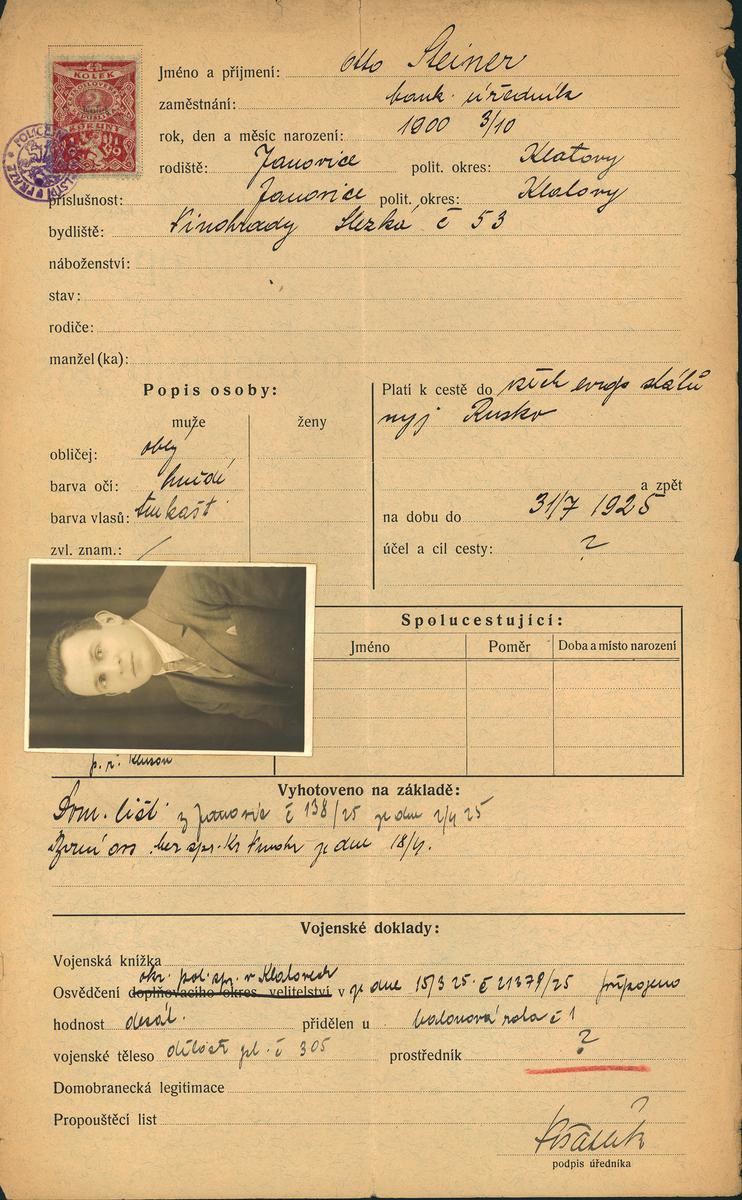 KOLEK
Jméno a příjmení: Otto Steiner
zaměstnání: bank. úředník
rok, den a měsíc narození: 1900 3/10
rodiště: Janovice polit. okres: Klatovy
příslušnost: Janovice polit. okres: Klatovy
bydliště: Vinohrady Slezká č 53
náboženství:
stav:
rodiče:
manžel(ka):
Popis osoby:
muže ženy
obličej: oblý
barva očí: hnědé
barva vlasů:
zvl. znam.: /
Platí k cestě do všech evrop států
Rusko
a zpět
na dobu do 31/7 1925
účel a cíl cesty: ?
Spolucestující:
Jméno Poměr Doba a místo narození
Vyhotoveno na základě:
Dom. list z Janovic č 138/25 ze dne 2/4 25
ze dne 18/4.
Vojenské doklady:
Vojenská knížka
okr. pol. spr. v Klatovech
Osvědčení doplňovacího okres. velitelství v ze dne 15/3 25. č 21379/25 připojeno
hodnost desát. přidělen u balonová rota č 1
vojenské těleso děl. č 305 prostředník ?
Domobranecká legitimace
Propouštěcí list
podpis úředníka